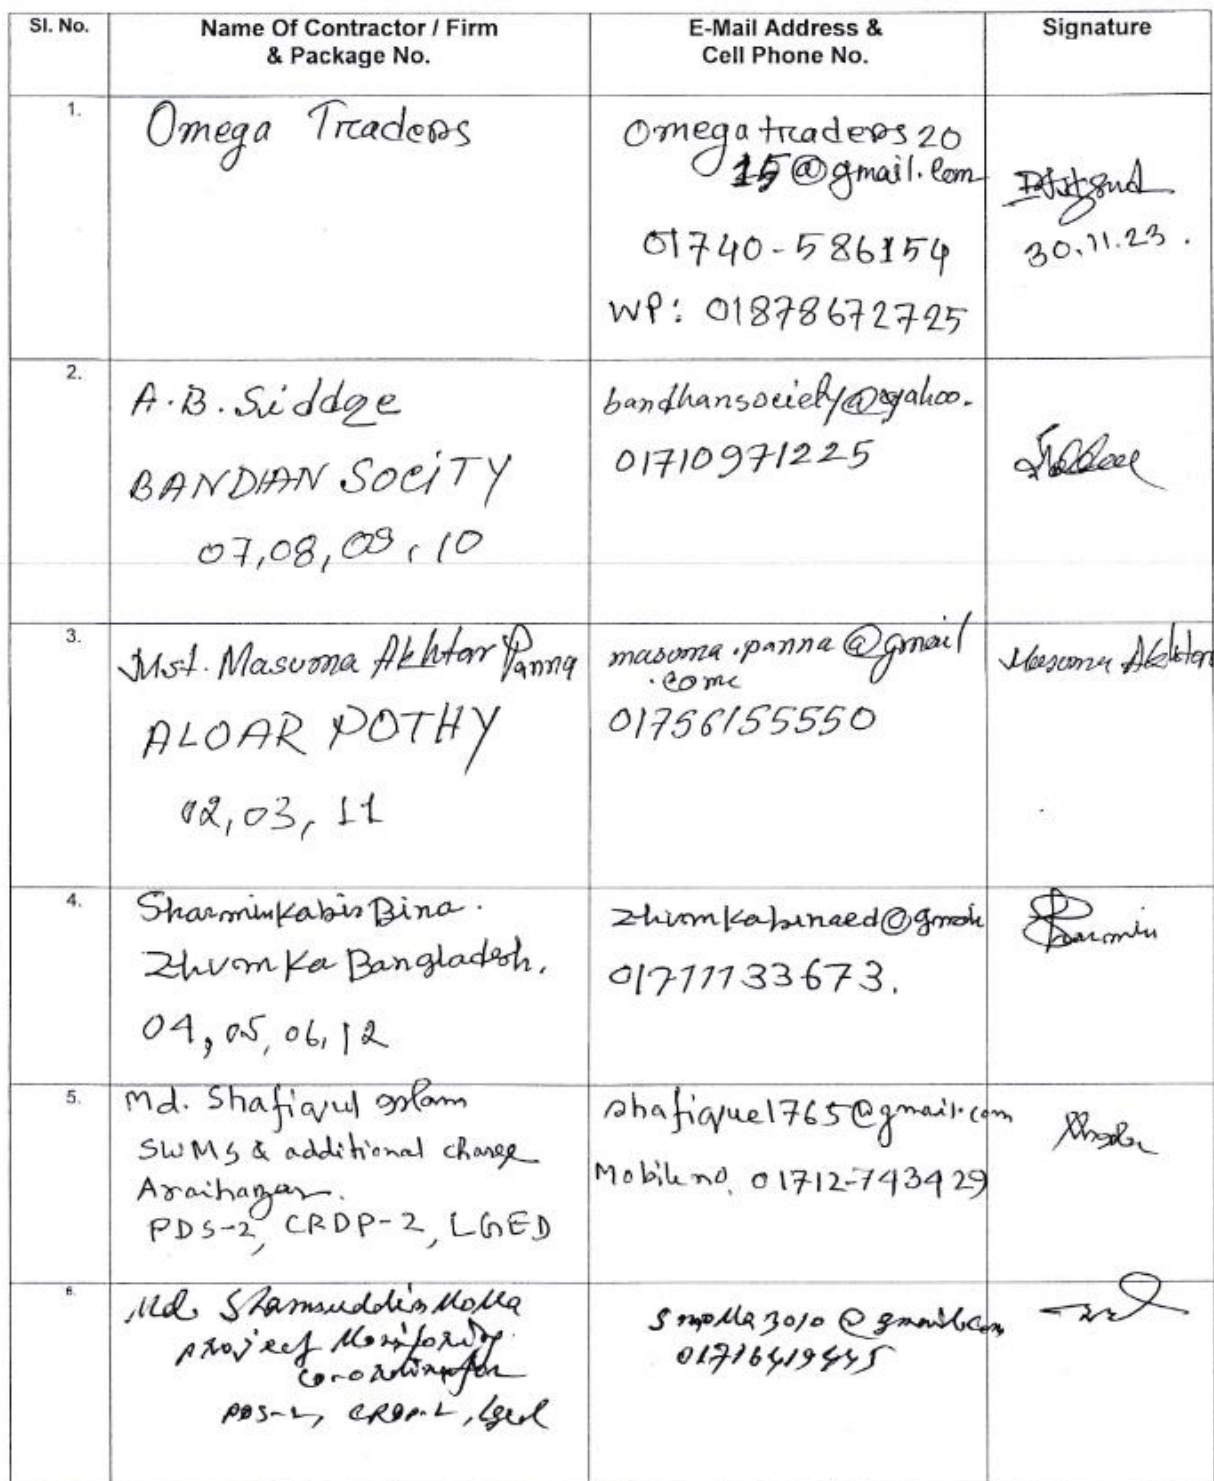 Sl. No.
Name Of Contractor / Firm
& Package No.
E-Mail Address &
Cell Phone No.
Signature
1.
Omega Traders
Omegatraders20
15@gmail.com
01740-586154
WP: 01878672725
30.11.23.
2.
A.B. Siddqe
BANDHAN SOCiTY
07,08,09,10
bandhansociety@yahoo.
01710971225
3.
Mst. Masuma Akhtar Panna
ALOAR POTHY
02,03, 11
masuma.panna@gmail
.com
01756155550
Masuma Akhtar
4.
Sharmin Kabir Bina.
Zhumka Bangladesh.
04, 05, 06, 12
Zhumkabinaed@gmail
01711133673.
Sharmin
5.
Md. Shafiqul Islam
SWMS & additional charge
Araihazar.
PDS-2, CRDP-2, LGED
shafique1765@gmail.com
Mobile no. 01712-743429
6.
Md. Shamsuddin Molla
project Monitoring
coordinator
PDS-2, CRDP-2, lged
smolla3010@gmail.com
01716419445